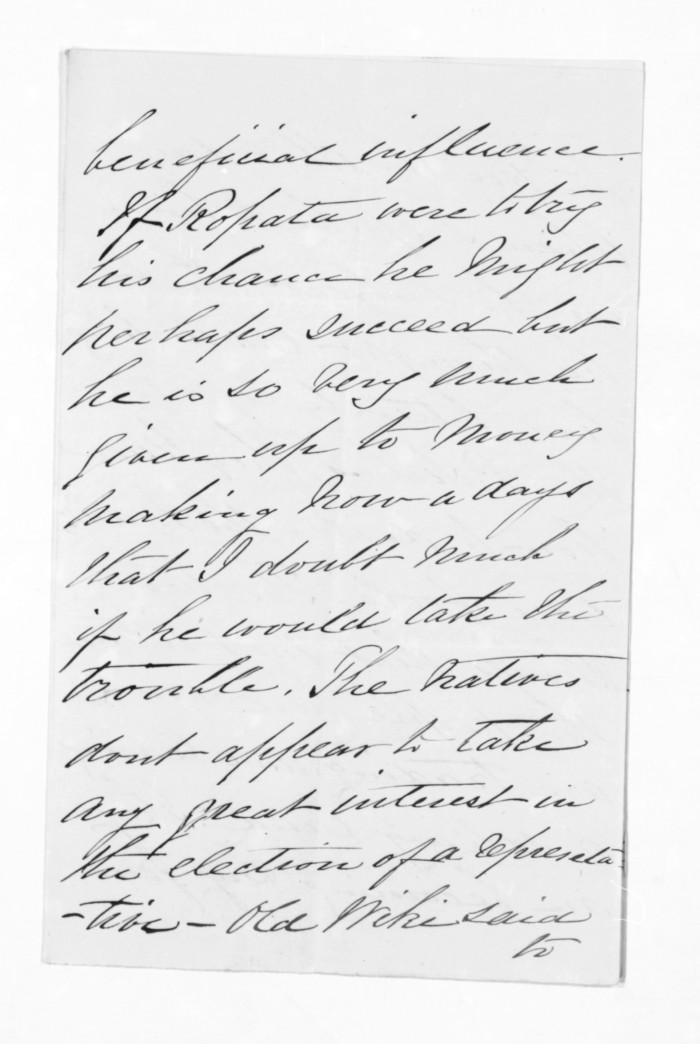 beneficial influence.
If Ropata were to try
his chance he might
perhaps succeed but
he is so very much
given up to money
making now a days
that I doubt much
if he would take the
trouble. The natives
dont appear to take
any great interest in
the election of a representa-
-tive - Old Wiki said
to